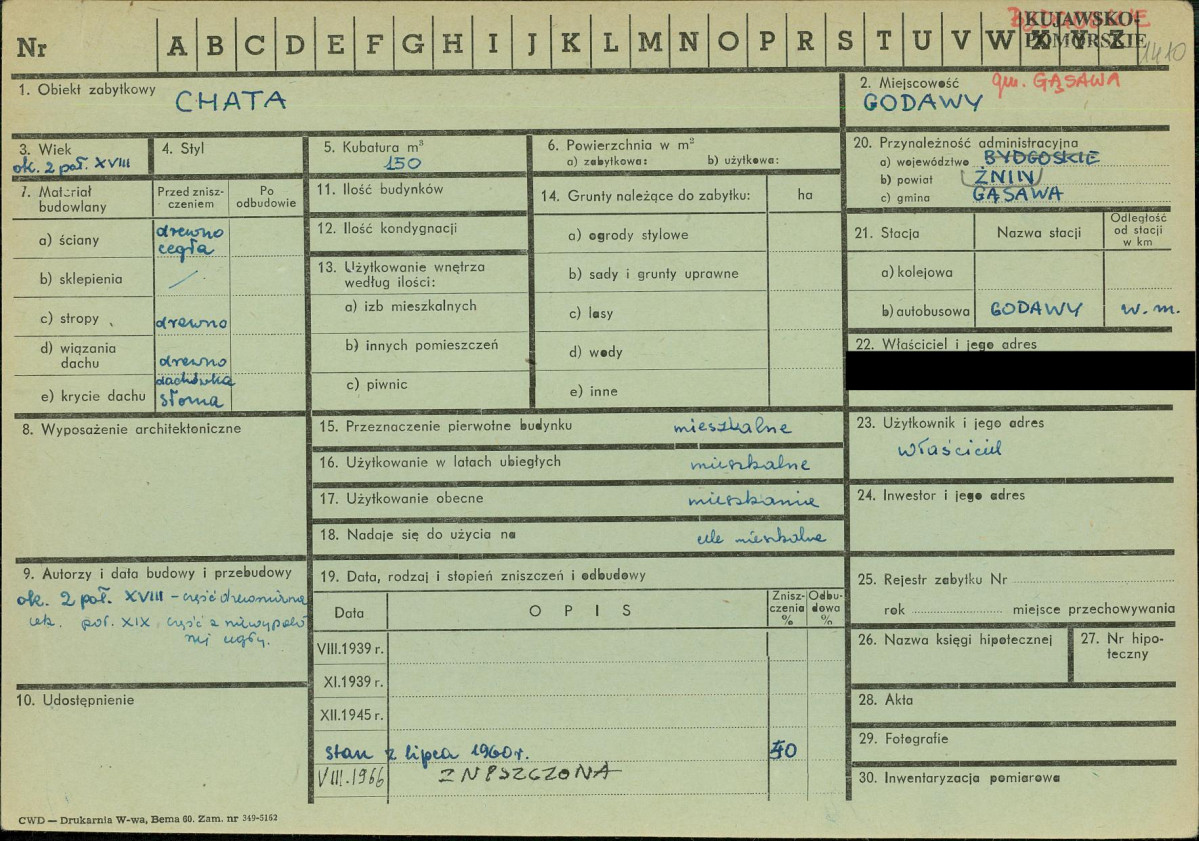 Nr A B C D E F G H I J K L M N O P R S T U V W X Y Z
KUJAWSKO-
POMORSKIE
1410
1. Obiekt zabytkowy
CHATA
2. Miejscowość gm. GĄSAWA
GODAWY
3. Wiek
ok. 2 poł. XVIII
4. Styl
5. Kubatura m³
150
6. Powierzchnia w m²
a) zabytkowa: b) użytkowa:
20. Przynależność administracyjna
a) województwo BYDGOSKIE
b) powiat ŻNIN
c) gmina GĄSAWA
7. Materiał budowlany
Przed zniszczeniem
Po odbudowie
a) ściany drewno
cegła
b) sklepienia /
c) stropy drewno
d) wiązania dachu drewno
e) krycie dachu dachówka
słoma
11. Ilość budynków
12. Ilość kondygnacji
13. Użytkowanie wnętrza
według ilości:
a) izb mieszkalnych
b) innych pomieszczeń
c) piwnic
14. Grunty należące do zabytku: ha
a) ogrody stylowe
b) sady i grunty uprawne
c) lasy
d) wody
e) inne
21. Stacja Nazwa stacji Odległość od stacji w km
a) kolejowa
b) autobusowa GODAWY w. m.
22. Właściciel i jego adres
8. Wyposażenie architektoniczne
15. Przeznaczenie pierwotne budynku mieszkalne
16. Użytkowanie w latach ubiegłych mieszkalne
17. Użytkowanie obecne mieszkanie
18. Nadaje się do użycia na cele mieszkalne
23. Użytkownik i jego adres
właściciel
24. Inwestor i jego adres
9. Autorzy i data budowy i przebudowy
ok. 2 poł. XVIII – część drewniana
ok. poł. XIX część z niewypalo
nej cegły.
10. Udostępnienie
19. Data, rodzaj i stopień zniszczeń i odbudowy
Data OPIS Zniszczenia % Odbudowa %
VIII.1939 r.
XI.1939 r.
XII.1945 r.
stan z lipca 1960r.
VIII.1966 ZNISZCZONA
25. Rejestr zabytku Nr
rok miejsce przechowywania
26. Nazwa księgi hipotecznej
27. Nr hipoteczny
28. Akta
29. Fotografie
30. Inwentaryzacja pomiarowa
CWD — Drukarnia W-wa, Bema 60. Zam. nr 349-5162